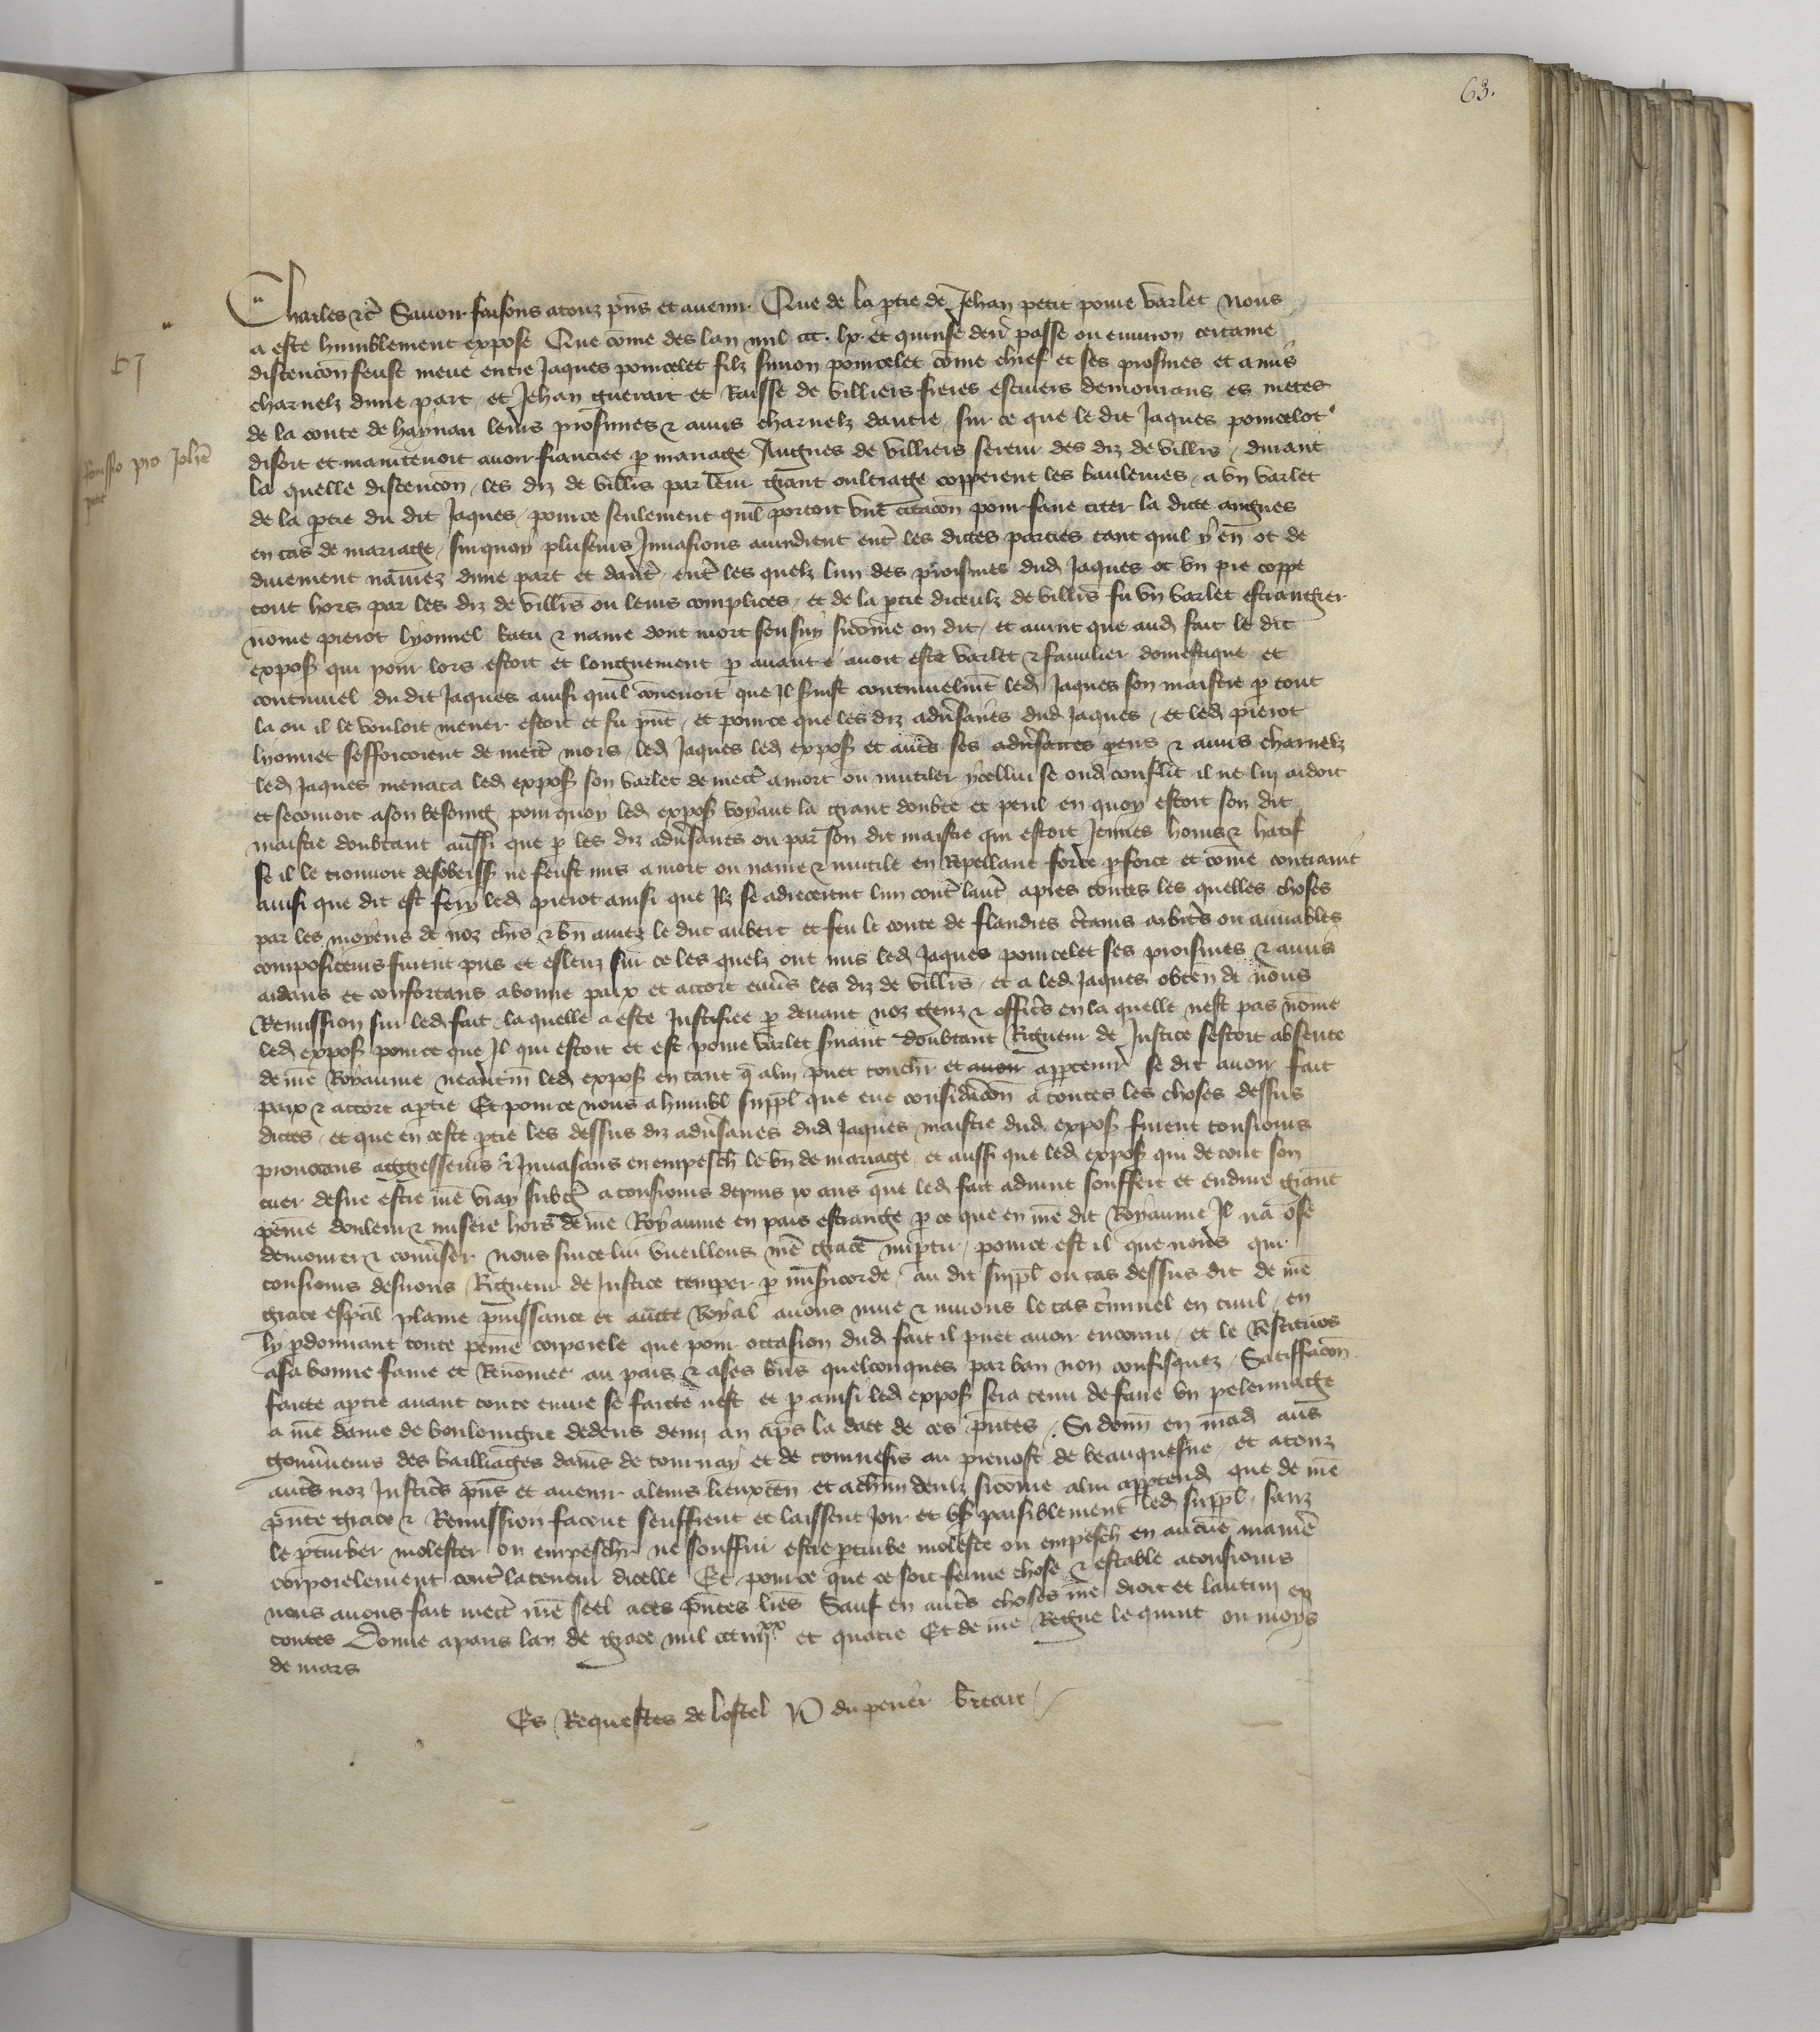 63.
Charles etc̃ Savoir faisons a touz p̃ns et avenir Que de la p̱tie de Jehan petit povre varlet Nous
a este humblement expose Que cõme des lan mil ccc. lx. et quinse den̄r passe ou environ certaine
discencõn feust meue entre Jaques poincelet filz simon poincelet cõme chief et ses proismes et amis
charnelz dune part, et Jehan Guerart et Raisse de villiers freres escuiers demourans es metes
de la conte de haynau leurs proismes & amis charnelz dautre, sur ce que le dit Jaques poincelot
disoit et maintenoit avoir fiancee p̱ mariage Angnes de villiers sereur des diz de villr̃s, durant
la quelle discencõn, les diz de villr̃s par leur grant oultrage copperent les baulevres, a un varlet
de la p̱tie du dit Jaques, pource seulement quil portoit une citacõn pour faire citer la dicte angnes
en cas de mariage, surquoy pluseurs Invasions avindrent entr̃ les dictes parties tant quil y en ot de
duement navrez dune part et dautr̃, entr̃ les quelz lun des proismes dud̃ Jaques ot un pie coppe
tout hors par les diz de villr̃s ou leurs complices, et de la p̱tie diceulz de villr̃s fu un varlet estrangier
nõme pierot lyonnel batu & navre dont mort sensuy sicõme on dit, et avint que aud̃ fait le dit
expos̃ qui pour lors estoit et longuement p̱ avant avoit este varlet & familier domestique et
continuel du dit Jaques ainsi quil cõnenoit que Il suist continuelm̃t led̃ Jaques son maistre p̱ tout
la ou il le vouloit mener estoit et fu p̃nt, et pource que les diz adṽsaires dud̃ Jaques, et led̃ pierot
lyonnet sefforcoient de mectr̃ mors, led̃ Jaques led̃ expos̃ et autr̃s ses adṽsaires p̱ens & amis charnelz
led̃ Jaques menaca led̃ expos̃ son varlet de mectr̃ a mort ou mutiler ycellui se oud̃ conflict il ne lui aidoit
et secouroit a son besoing, pour quoy led̃ expos̃ voyant la grant doubte et peril en quoy estoit son dit
maistre doubtant aussi que p̱ les diz adṽsaires ou par son dit maistre qui estoit Jeunes homs & hatif
se il le trouvoit desobeiss̃ ne feust mis a mort ou navre & mutile en Repellant force p̱ force et cõme contraint
ainsi que dit est fery led̃ pierot ainsi que Ilz se adrecerent lun contr̃ lautr̃, apres toutes les quelles choses
par les moyens de noz chr̃s & bñ amez le duc aubert et feu le conte de flandres c̃tains arbitr̃s ou amiables
compositeurs furent pris et esleuz sur ce les quelz ont mis led̃ Jaques poincelet ses proismes & amis
aidans et confortans a bonne paix et accort enṽs les diz de villr̃s, et a led̃ Jaques obten̄ de nous
Remission sur led̃ fait, la quelle a este Justifiee p̱ devant noz genz & officr̃s en la quelle nest pas nõme
led̃ expos̃ pource que Il qui estoit et est povre varlet s̃vant doubtant Rigueur de Justice sestoit absente
de nr̃e Royaume, neãtm̃ led̃ expos̃ en tant q̃ a lui puet touchr̃ et avoir app̱tenir̃ se dit avoir fait
paix & accort a p̱tie Et pource nous a humbl̃ suppl̃ que eue considac̃on a toutes les choses dessus
dictes, et que en ceste p̱tie les dessus diz adṽsaires dud̃ Jaques maistre dud̃ expos̃ furent tousiours
provocans aggresseurs & Invasans en empesch̃ le bñ de mariage et aussi que led̃ expos̃ qui de tout son
cuer desire estre nr̃e vray subg̃ a tousiours depuis x ans que led̃ fait advint souffert et endure grant
peinne douleur & misere hors de nr̃e Royaume en pais estrange p̱ ce que en nr̃e dit Royaume Il na ose
demourer & conṽser nous sur ce lui vueillens nr̃e grace imp̱tir, pource est il que nous qui
tousiours desirons Rigueur de Justice temper p̱ mis̃icorde, au dit suppl̃ ou cas dessus dit de nr̃e
grace esp̃al plaine puissance et auct̃e Royal avons mue & muons le cas c̃iminel en civil, en
ly p̱donnant toute peinne corporele que pour occasion dud̃ fait il puet avoir encouru, et le Restituõs
a sa bonne fame et Renõmee au pais & a ses bñs quelconques par ban non confisquez, Satiffacõn
faicte a p̱tie avant toute euvre se faicte nest et p̱ ainsi led̃ expos̃ sera tenu de faire un pelerinage
a nr̃e dame de bouloingne dedens demi an ap̃s la date de ces p̃ntes. Si donñ en mad̃ aus
gouṽneurs des bailliages damiẽs de tournay et de tournesis au prevost de beauquesne, et a touz
autr̃s noz Justicr̃s p̃ns et avenir a leurs lieuxteñ et a ch̃un deulz sicõme a lui app̱tend̃ que de nr̃e
p̃nte grace & Remission facent seuffrent et laissent Joir et us̃ paisiblement led̃ suppl̃, sanz
le p̱turber molester ou empeschr̃ ne souffrir estre p̱turbe moleste ou empesch̃ en aucũe manier̃
corporelement contr̃ la teneur dicelle Et pource que ce soit ferme chose & estable a tousiours
nous avons fait mectr̃ nr̃e seel a ces p̃ntes lr̃es Sauf en autr̃s choses nr̃e droit et lautrui en
toutes Donne a paris lan de grace mil ccc iiij.xx et quatre Et de nr̃e Regne le quint ou moys
de mars
Es Requestes de lostel